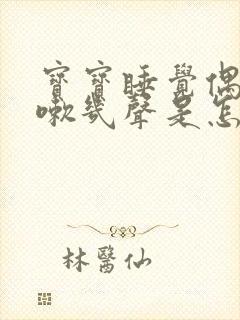 寶寶睡覺偶
嗽幾聲是怎
林醫仙